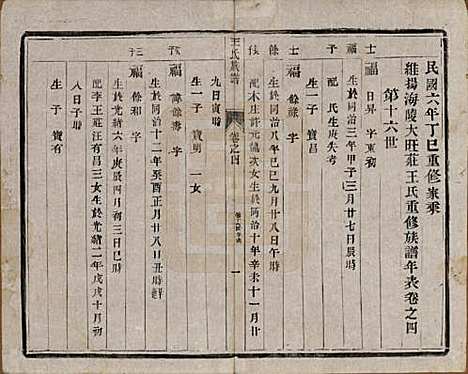 民國六年丁巳重修家乘
維揚海陵大旺莊王氏重修族譜年表卷之四
第十六世
士福 日昇 字 東網
生於同治三年甲子三月廿七日辰時
配 氏生庚失考
子
士福 餘祿 字
餘 生於同治八年己巳九月廿八日午時
配木庄許元儀次女生於同治十年辛未十一月廿
王氏族譜 卷之四 一
九日寅時
生一子 寶明 一女
福 餘壽 字
生於同治十二年癸酉正月廿八日丑時
福 餘和 字
生於光緒六年庚辰四月初三日巳時
配李王莊汪有昌三女生於光緒 年戊戌十月初
八日子時
生 子 寶